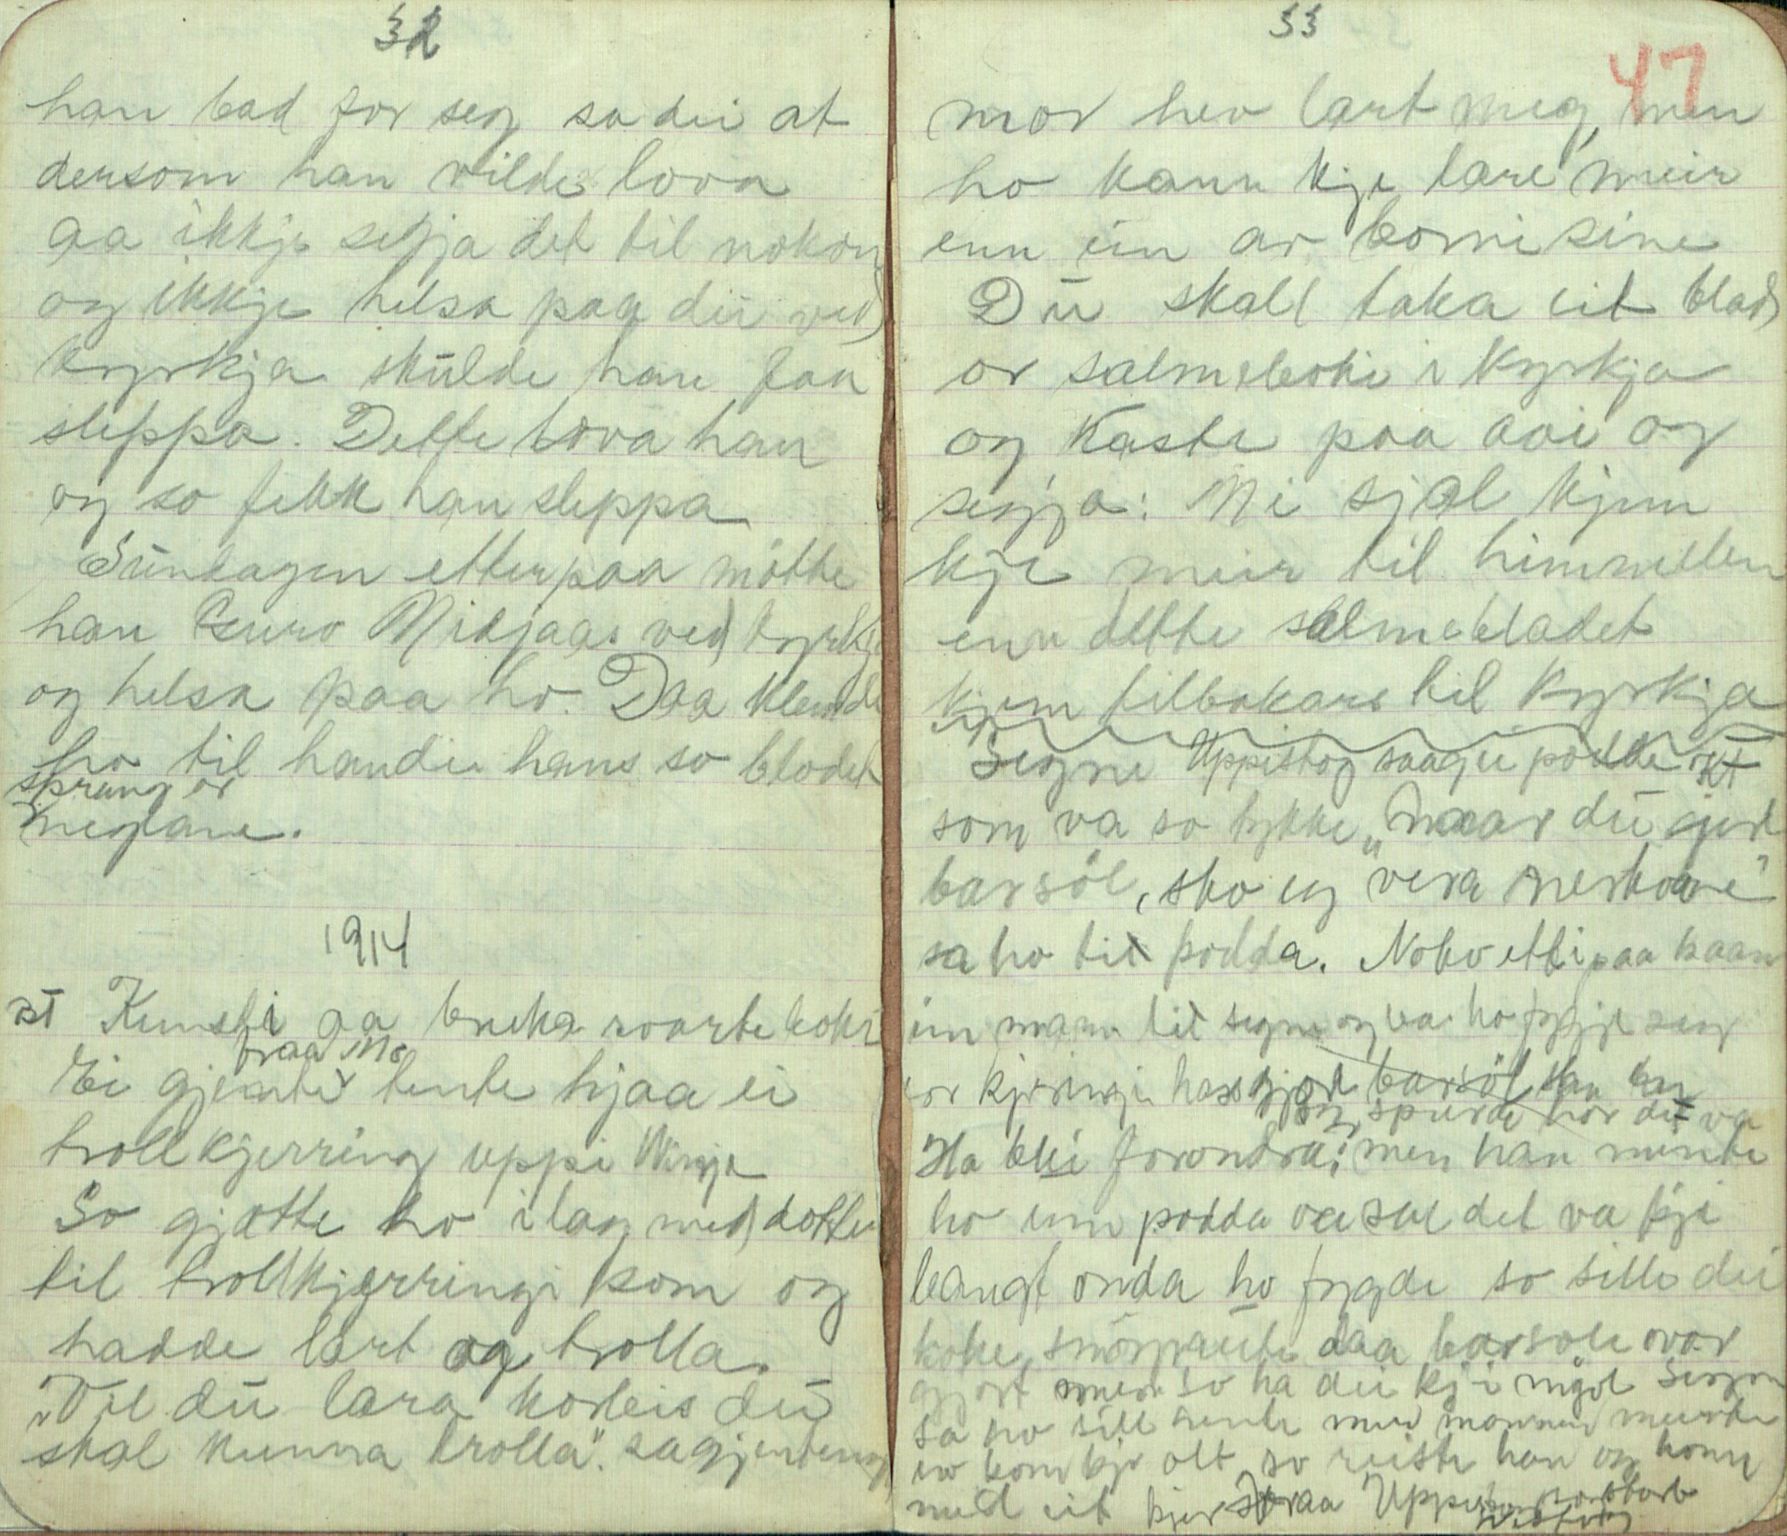 32
han bad for seg sa dei at
dersom han vilde lova
aa ikkje segja det til nokon
og ikkje helsa paa dei ved
kyrkja skulde han faa
sleppa. Dette lova han
og so fekk han sleppa
Sundagen etterpaa møtte
han Guro Midjaas ved kyrkja
og helsa paa ho. Daa klemde
ho til handi hans so blodet
sprang or
neglane.
1914
Kunsti aa bruka svarteboki
fraa Mo
Ei gjente tente hjaa ei
trollkjerring uppi Vinje
So gjætte ho ilag med dotter
til trollkjerringi som og
hadde lært og trolla.
"Vil du læra korleis du
skal kunna trolla". sa gjenteung
33
47
mor hev lært meg, men
ho kann kje lære meir
enn ein av borni sine
Du skall taka eit blad
or salmeboki i kyrkja
og kaste paa aai og
segja: Mi sjæl kjem
kje meir til himmelen
enn dette salmebladet
kjem tilbakars til kyrkja
Segne Uppistog saag ei podde
som va so tykke "naar du gjer
barsöl, sko eg vera nerkone"
sa ho til podda. Noko ettipaa kaam
ein mann til Segne og ba ho fygje seg
for kjeringi hass gjorde barsöl
og spurde hor det va
Ho blei forondra; men han minte
ho um podda det va kje
langt onda ho fygde so sille dei
koke smörgraut daa barsöle var
gjort men so ha dei kje mjöl Segne
sa ho sill hente men mannen meinte
ho kom kje att so reiste han og kom
med eit kjer fraa Uppistog